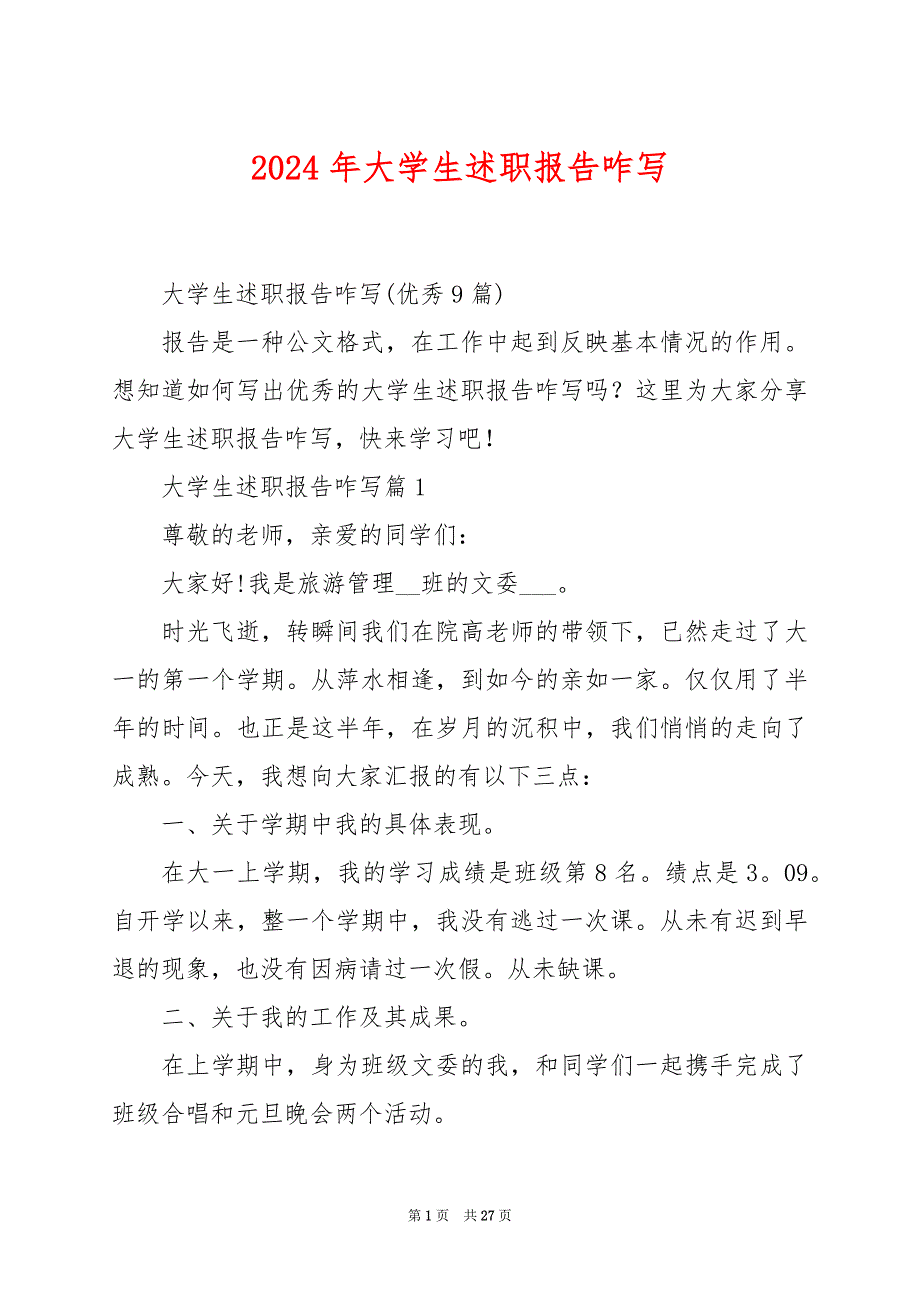 2024年大学生述职报告咋写
大学生述职报告咋写(优秀9篇)
报告是一种公文格式，在工作中起到反映基本情况的作用。
想知道如何写出优秀的大学生述职报告咋写吗？这里为大家分享
大学生述职报告咋写，快来学习吧！
大学生述职报告咋写篇1
尊敬的老师，亲爱的同学们：
大家好!我是旅游管理__班的文委___。
时光飞逝，转瞬间我们在院高老师的带领下，已然走过了大
一的第一个学期。从萍水相逢，到如今的亲如一家。仅仅用了半
年的时间。也正是这半年，在岁月的沉积中，我们悄悄的走向了
成熟。今天，我想向大家汇报的有以下三点：
一、关于学期中我的具体表现。
在大一上学期，我的学习成绩是班级第8名。绩点是3。09。
自开学以来，整一个学期中，我没有逃过一次课。从未有迟到早
退的现象，也没有因病请过一次假。从未缺课。
二、关于我的工作及其成果。
在上学期中，身为班级文委的我，和同学们一起携手完成了
班级合唱和元旦晚会两个活动。
第1页 共27页